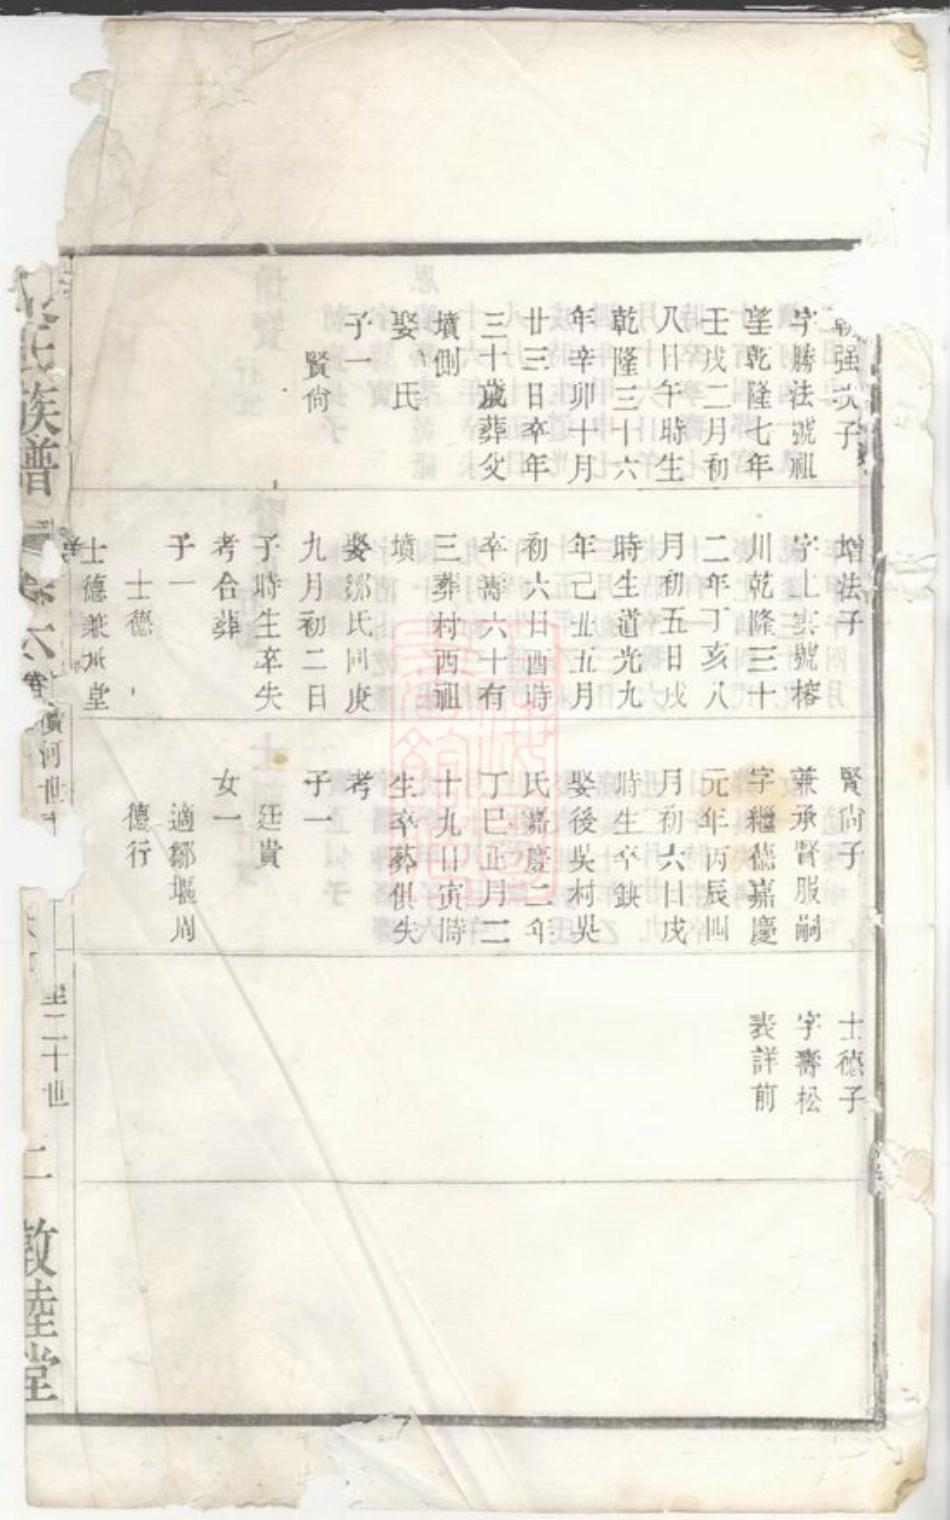 强次子
字勝法號祖
望乾隆七年
壬戌二月初
八日午時生
乾隆三十六
年辛卯十月
廿三日卒年
三十歲葬父
墳側
娶 氏
子一
賢尙
增法子
字 號榕
川乾隆三十
二年丁亥八
月初五日戌
時生道光九
年己丑五月
初六日酉時
卒壽六十有
三葬村西祖
墳
娶鄒氏同庚
九月初二日
子時生卒失
考合葬
子一
士德
士德兼承堂
賢尙子
兼承賢服嗣
字繼德嘉慶
元年丙辰四
月初六日戌
時生卒缺
娶後吳村吳
氏嘉慶二年
丁巳正月二
十九日寅時
生卒葬俱失
考
子一
廷貴
女一
適鄒堰周
德行
士德子
字壽松
表詳前
氏族譜
卷六
河世
至二十世
二
敦睦堂